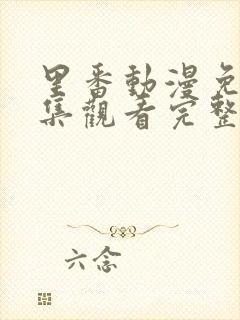 里番動漫免
集觀看完整
六念